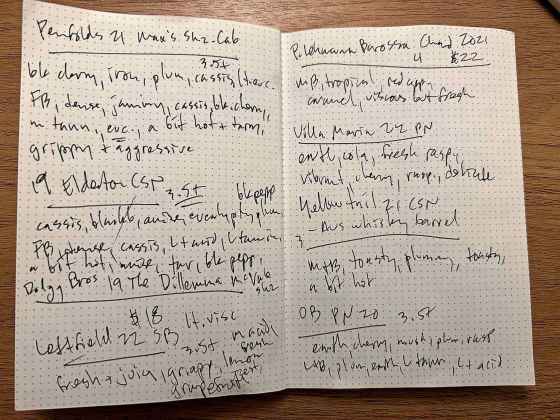 Penfolds 21 Max's Shz. Cab
3.5+
blk cherry, iron, plum, cassis, lt. euc.
FB, dense, jammy, cassis, blk. cherry,
m tann, euc., a bit hot + tarry,
grippy + aggressive
19 Elderton CSN 3.5+ blk pepp
cassis, blackb, anise, eucalypt, plum,
FB, dense, cassis, Lt acid, Lt tannin,
a bit hot, anise, tar, blk pepr,
Dalgg Bros 19 The Dilemma McVale
shz
$18
Leftfield 22 SB lt. visc
3.5+ m acid,
fresh + juicy, grapy, lemon
grapefruit
P. Lehmann Barossa Chard 2021
4 $22
mB, tropical, red app,
caramel, viscous but fresh
Villa Maria 22 PN
earth, cola, fresh rasp,
vibrant, cherry, rasp, delicate
Yellow tail 21 CSN
- Aus whiskey barrel
3
m+B, toasty, plummy, toasty,
a bit hot
OB PN 20 3.5+
earth, cherry, mush, plum, rasp
plum, earth, Lt tann, Lt acid